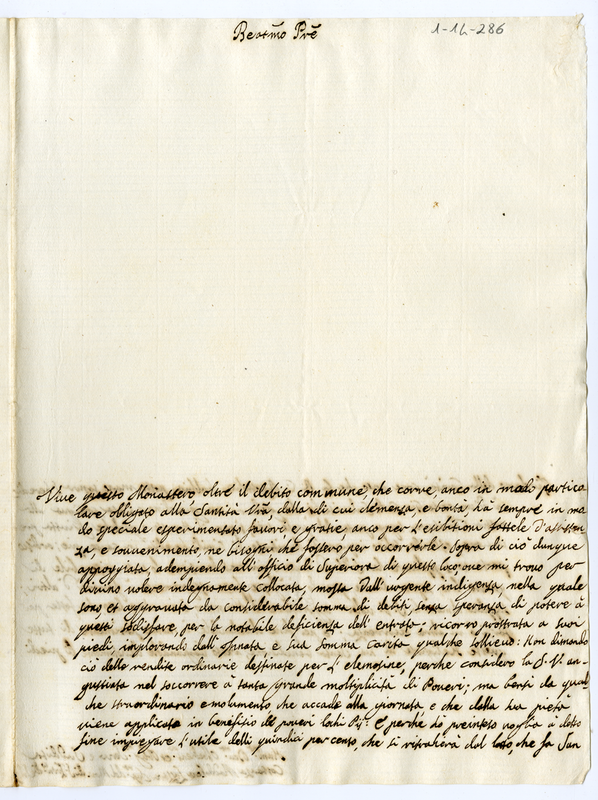 Beatmo Prē
1-14-286
Vive questo Monastero oltre il debito commune, che corre, anco in modo partico
lare obligato alla Santità Vra, dalla di cui clemenza, e bontà, hà sempre in mo
do speciale esperimentato favori, e gratie, anco per l'esibitioni fattele d'assisten
za, e souuenimento, ne bisogni che fossero per occorrerle. Sopra di ciò dunque
appoggiata, adempiendo all'officio di Superiora di questo loco, oue mi trouo per
diuino uolere indegnamente collocata, mossa dall'urgente indigenza, nella quale
sono, et aggrauata da considerabile somma di debiti, senza speranza di potere à
questi sodisfare, per la notabile deficienza dell'entrate; ricorro prostrata a suoi
piedi, implorando dall' innata e sua somma carità qualche sollieuo: Non dimando
ciò dalle rendite ordinarie destinate per l'elemosine, perche considero la S.V. an-
gustiata nel soccorrere à tanta grande moltiplicità di Poueri; ma bensi da qual
che straordinario emolumento, che accade alla giornata e che dalla sua pietà
uiene applicato in beneficio de poueri lochi Pij: E perche hò preinteso uoglia à detto
fine impiegare l'utile delli quindici per cento, che si ritraherà dal lotto, che fa San